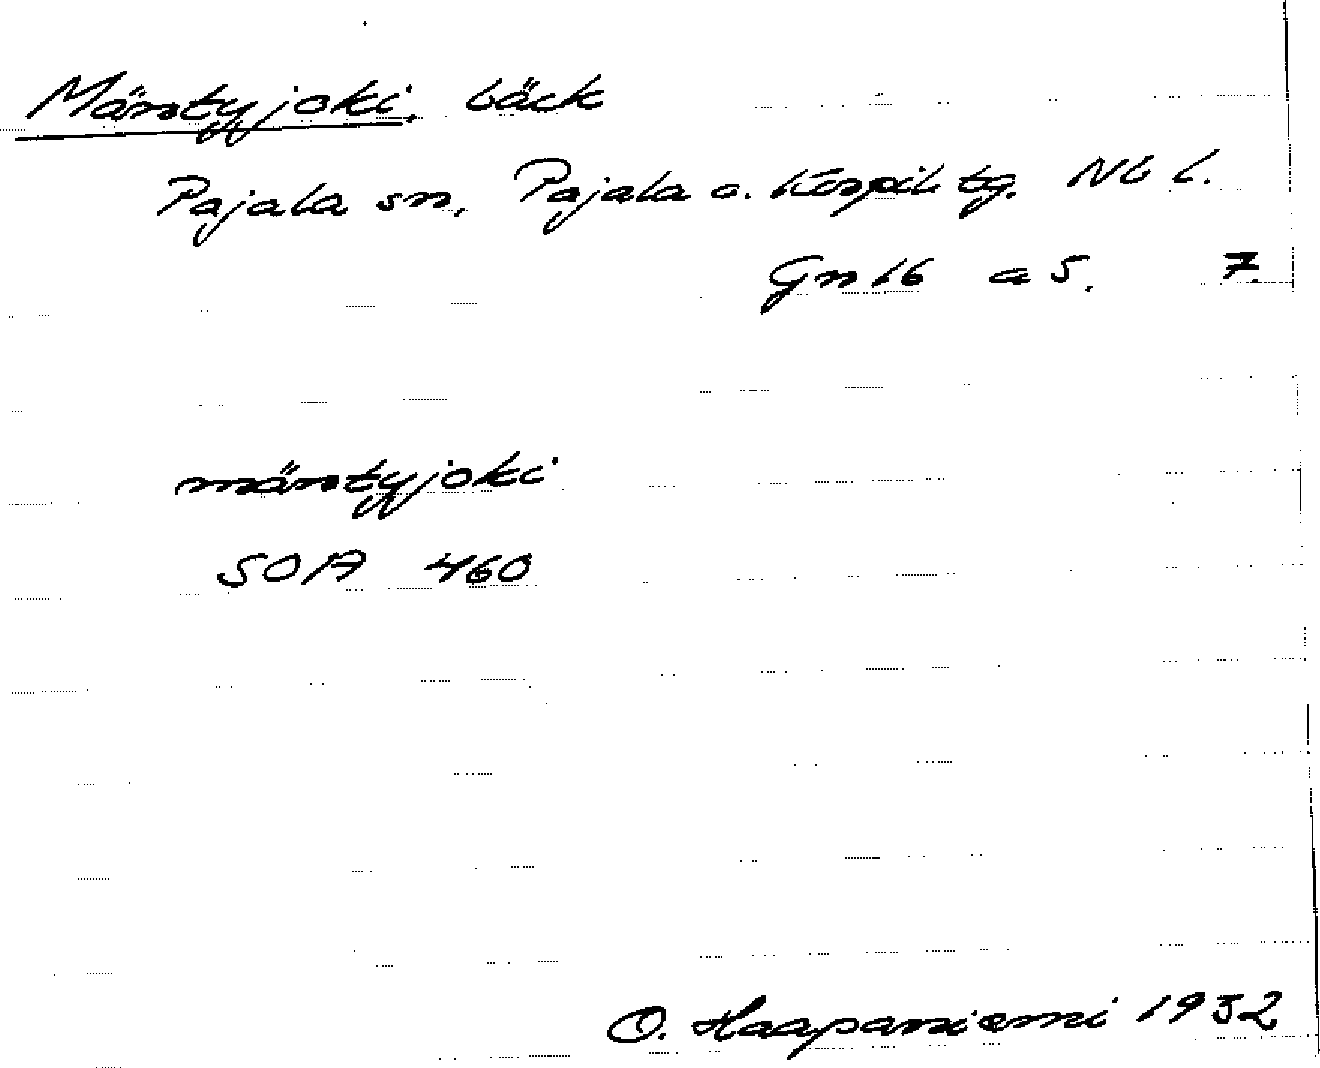 Mäntyjoki, bäck
Pajala sn, Pajala o. Korpil. tg. Nb l.
Gn 16 a 5. 7.
mäntyjoki
SOA 460
O. Haapaniemi 1932